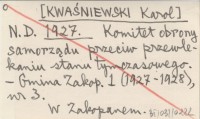 [KWAŚNIEWSKI Karol]
N.D. 1927. Komitet obrony
samorządu przeciw przewle-
kaniu stanu tymczasowego.
– Gmina Zakop. 1 (1927-1928),
nr 3.
W Zakopanem.